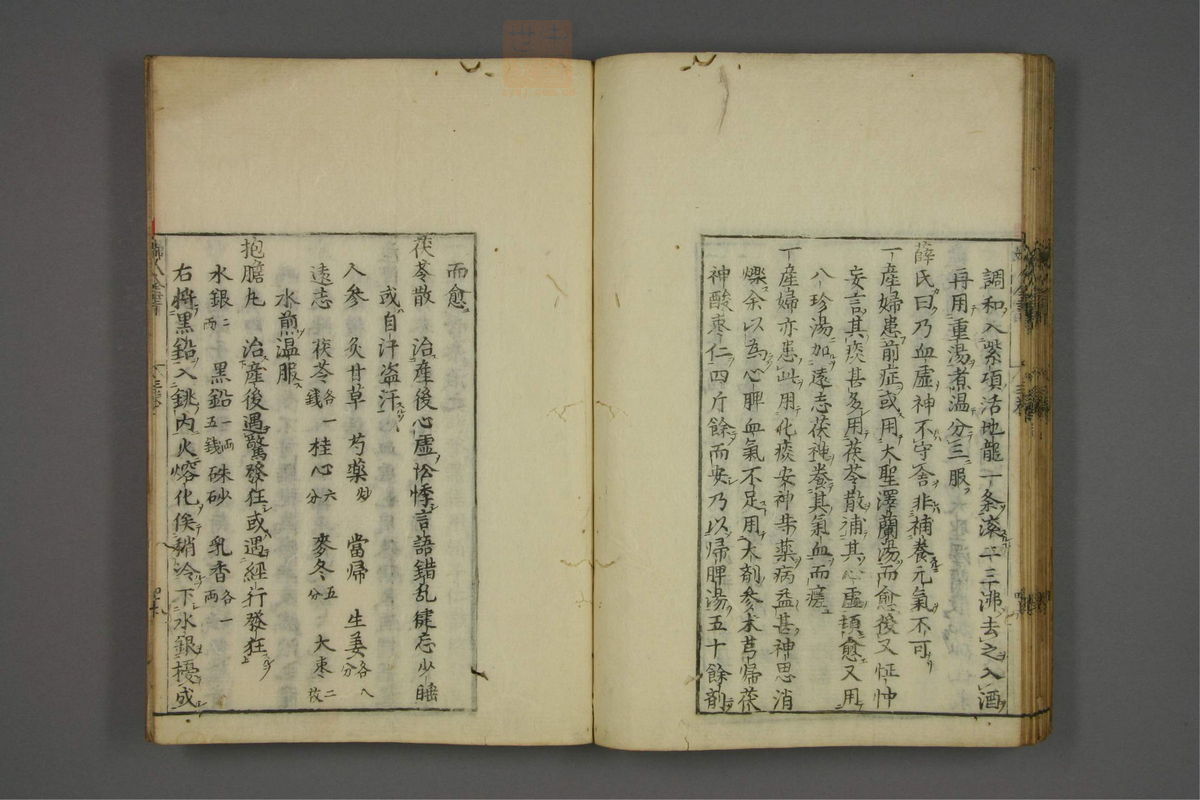 調和入紫項活地龍一条滚二三沸去之入酒
再用重湯煮温分三服
薛氏曰乃血虛神不守舍非補養元氣不可
一產婦患前症或用大聖澤蘭湯而愈後又怔忡
妄言其痰甚多用茯苓散補其心虛頓愈又用
八珍湯加遠志茯神養其氣血而瘥
一產婦亦患此用化痰安神等藥病益甚神思消
爍余以為心脾血氣不足用大劑參朮芎歸茯
神酸棗仁四斤餘而安乃以歸脾湯五十餘劑
而愈
茯苓散 治產後心虛忪悸言語錯乱健忘少睡
或自汗盗汗
人参 炙甘草 芍藥炒 當帰 生姜各八分
遠志 茯苓各一錢 桂心六分 麥冬五分 大枣二枚
水煎温服
抱膽丸 治產後遇驚發狂或遇經行發狂
水銀二両 黑鉛一両五錢 硃砂 乳香各一両
右將黑鉛入銚内火熔化候稍冷下水銀擾成